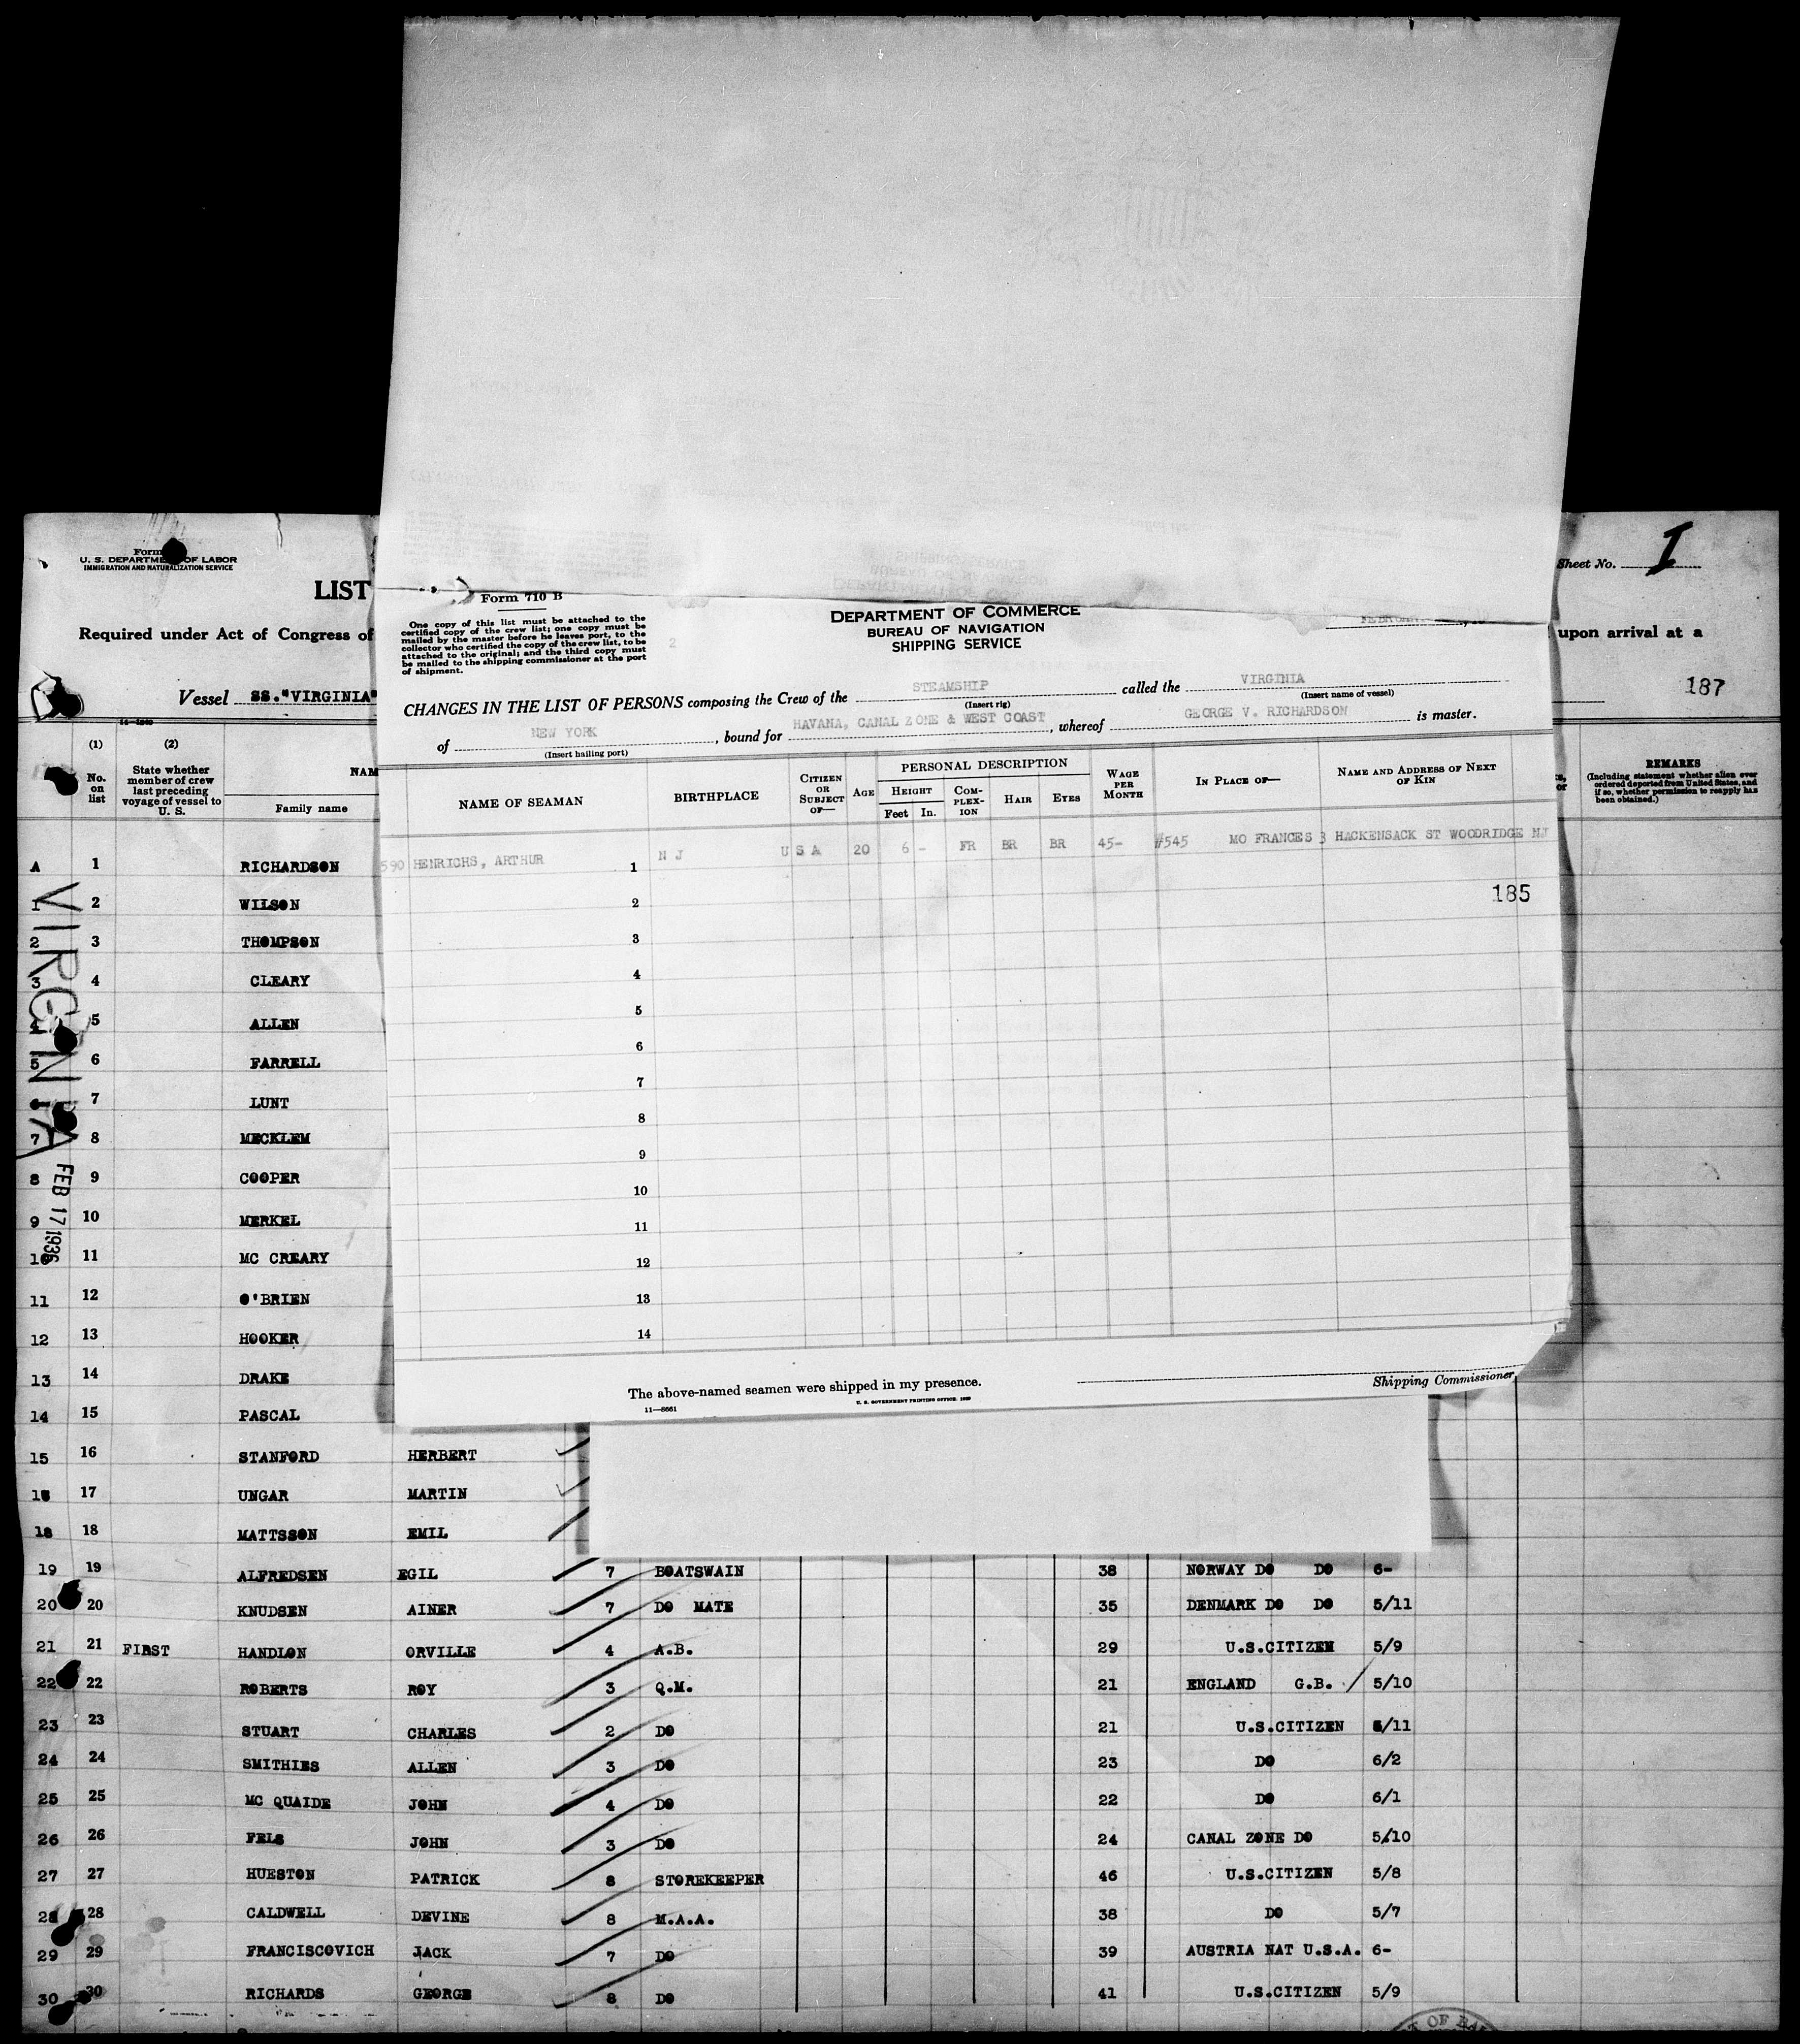 Form
U. S. DEPARTMENT OF LABOR
IMMIGRATION AND NATURALIZATION SERVICE
LIST
Required under Act of Congress of
Vessel SS."VIRGINIA"
Sheet No. I
upon arrival at a
187
(1) (2)
No. on list
State whether member of crew last preceding voyage of vessel to U. S.
Family name
REMARKS
(Including statement whether alien ever ordered deported from United States, and if so, whether permission to reapply has been obtained.)
Form 710 B
One copy of this list must be attached to the
certified copy of the crew list; one copy must be
mailed by the master before he leaves port, to the
collector who certified the copy of the crew list, to be
attached to the original; and the third copy must
be mailed to the shipping commissioner at the port
of shipment.
2
DEPARTMENT OF COMMERCE
BUREAU OF NAVIGATION
SHIPPING SERVICE
CHANGES IN THE LIST OF PERSONS composing the Crew of the STEAMSHIP called the VIRGINIA
(Insert rig) (Insert name of vessel)
of NEW YORK, bound for HAVANA, CANAL ZONE & WEST COAST, whereof GEORGE V. RICHARDSON is master.
(Insert hailing port)
NAME OF SEAMAN BIRTHPLACE CITIZEN OR SUBJECT OF— AGE PERSONAL DESCRIPTION WAGE PER MONTH IN PLACE OF— NAME AND ADDRESS OF NEXT OF KIN
HEIGHT COMPLEXION HAIR EYES
Feet In.
590 HENRICHS, ARTHUR 1 N J U S A 20 6 - FR BR BR 45- #545 MO FRANCES 3 HACKENSACK ST WOODRIDGE NJ
185
2
3
4
5
6
7
8
9
10
11
12
13
14
The above-named seamen were shipped in my presence.
Shipping Commissioner
11—8661
U. S. GOVERNMENT PRINTING OFFICE
VIRGINIA
FEB 17 1936
A 1 RICHARDSON
1 2 WILSON
2 3 THOMPSON
3 4 CLEARY
4 5 ALLEN
5 6 FARRELL
7 LUNT
7 8 MECKLEM
8 9 COOPER
9 10 MERKEL
10 11 MC CREARY
11 12 O'BRIEN
12 13 HOOKER
13 14 DRAKE
14 15 PASCAL
15 16 STANFORD HERBERT
17 UNGAR MARTIN
18 18 MATTSSON EMIL
19 19 ALFREDSEN EGIL 7 BOATSWAIN 38 NORWAY DO DO 6-
20 20 KNUDSEN AINER 7 DO MATE 35 DENMARK DO DO 5/11
21 21 FIRST HANDLON ORVILLE 4 A.B. 29 U.S.CITIZEN 5/9
22 22 ROBERTS ROY 3 Q.M. 21 ENGLAND G.B. / 5/10
23 23 STUART CHARLES 2 DO 21 U.S.CITIZEN 5/11
24 24 SMITHIES ALLEN 3 DO 23 DO 6/2
25 25 MC QUAIDE JOHN 4 DO 22 DO 6/1
26 26 FELS JOHN 3 DO 24 CANAL ZONE DO 5/10
27 27 HUESTON PATRICK 8 STOREKEEPER 46 U.S.CITIZEN 5/8
28 28 CALDWELL DEVINE 8 M.A.A. 38 DO 5/7
29 29 FRANCISCOVICH JACK 7 DO 39 AUSTRIA NAT U.S.A. 6-
30 30 RICHARDS GEORGE 8 DO 41 U.S.CITIZEN 5/9